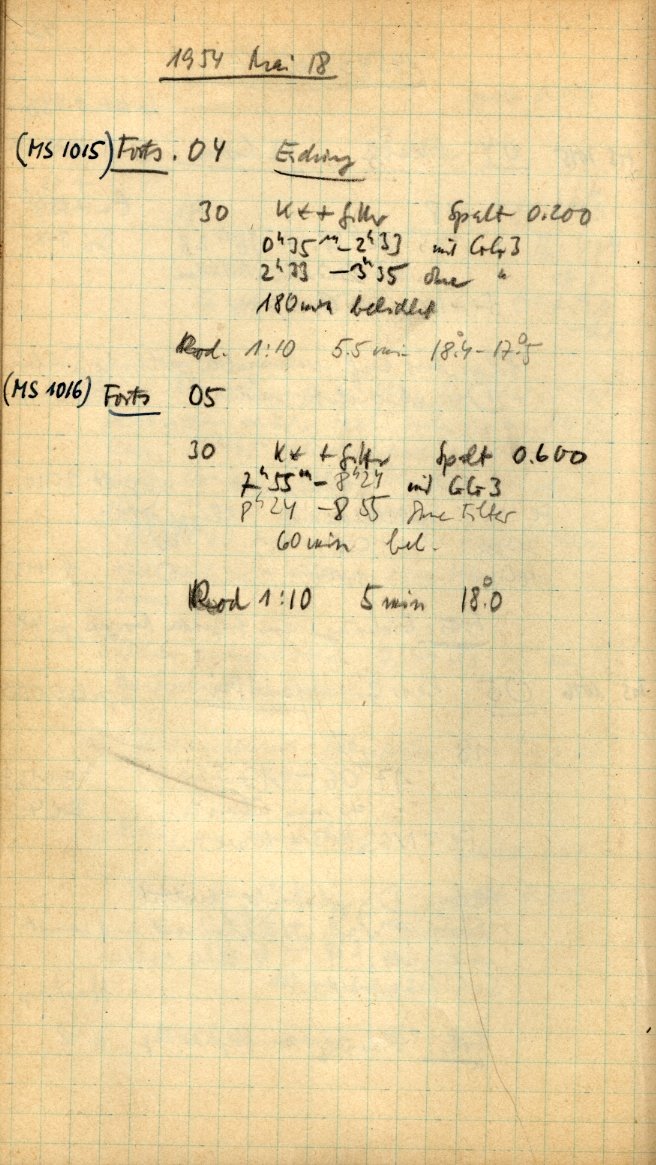 1954 Mai 18
(MS 1015) Forts. 04
30 + Filter Spalt 0.200
0ʰ35ᵐ – 2ʰ33 mit GG 3
2ʰ33 – 3ʰ35 ohne "
180 min belichtet
Rod. 1:10 5.5 min 18°.4 – 17°.5
(MS 1016) Forts 05
30 + Filter Spalt 0.600
7ʰ55ᵐ – 8ʰ24 mit GG 3
8ʰ24 – 8 55 ohne Filter
60 min bel.
Rod 1:10 5 min 18°.0